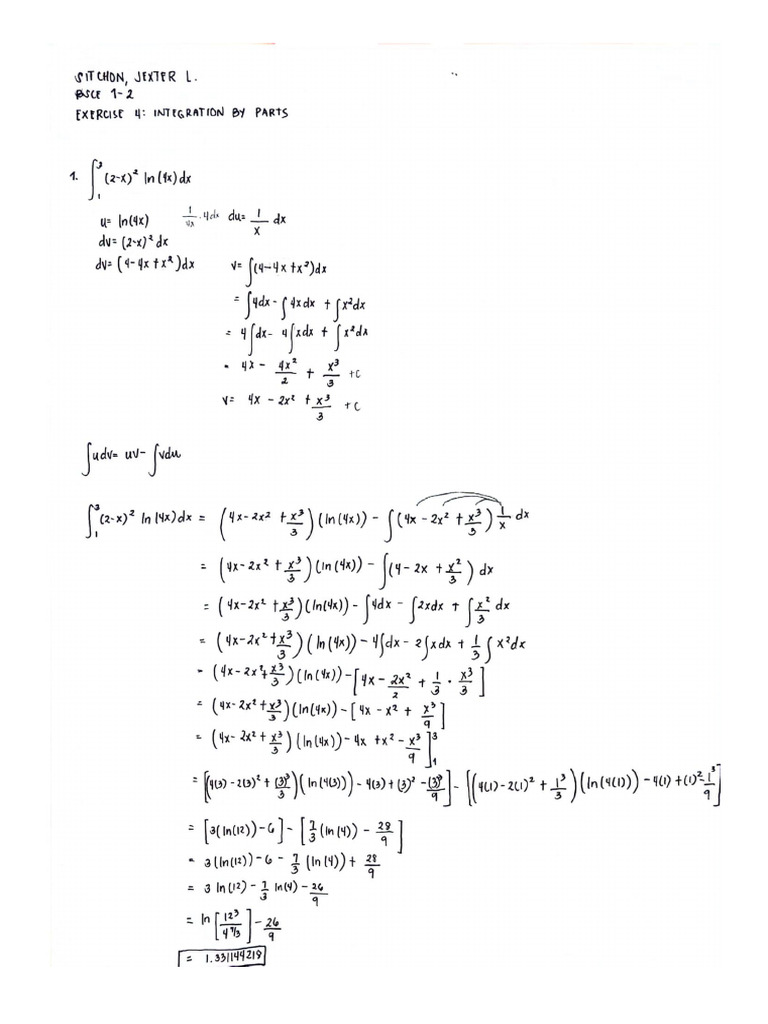 SITCHON, JEXTER L.
BSCE 1-2
EXERCISE 4: INTEGRATION BY PARTS
1. ∫₁³ (2-x)² ln(4x) dx
u= ln(4x) 1/4x · 4dx du= 1/x dx
dv= (2-x)² dx
dv= (4-4x+x²)dx v= ∫(4-4x+x²)dx
= ∫4dx - ∫4xdx + ∫x²dx
= 4∫dx - 4∫xdx + ∫x²dx
= 4x - 4x²/2 + x³/3 +c
v= 4x - 2x² + x³/3 +c
∫udv= uv- ∫vdu
∫₁³ (2-x)² ln(4x)dx = (4x-2x² + x³/3)(ln(4x)) - ∫(4x-2x²+x³/3) 1/x dx
= (4x-2x² + x³/3)(ln(4x)) - ∫(4-2x + x²/3) dx
= (4x-2x² + x³/3)(ln(4x)) - ∫4dx - ∫2xdx + ∫x²/3 dx
= (4x-2x²+x³/3)(ln(4x)) - 4∫dx - 2∫xdx + 1/3 ∫x²dx
= (4x-2x²+x³/3)(ln(4x)) - [4x - 2x²/2 + 1/3 · x³/3]
= (4x-2x²+x³/3)(ln(4x)) - [4x - x² + x³/9]
= (4x-2x²+x³/3)(ln(4x)) - 4x +x² - x³/9]₁³
= [(4(3)-2(3)²+(3)³/3)(ln(4(3))) - 4(3)+(3)² - (3)³/9] - [(4(1)-2(1)²+1³/3)(ln(4(1))) - 4(1)+(1)² 1³/9]
= [3(ln(12))-6] - [7/3(ln(4)) - 28/9]
= 3(ln(12)) -6 - 7/3 (ln(4)) + 28/9
= 3 ln(12) - 7/3 ln(4) - 26/9
= ln [12³/4^7/3] - 26/9
= 1.331144218